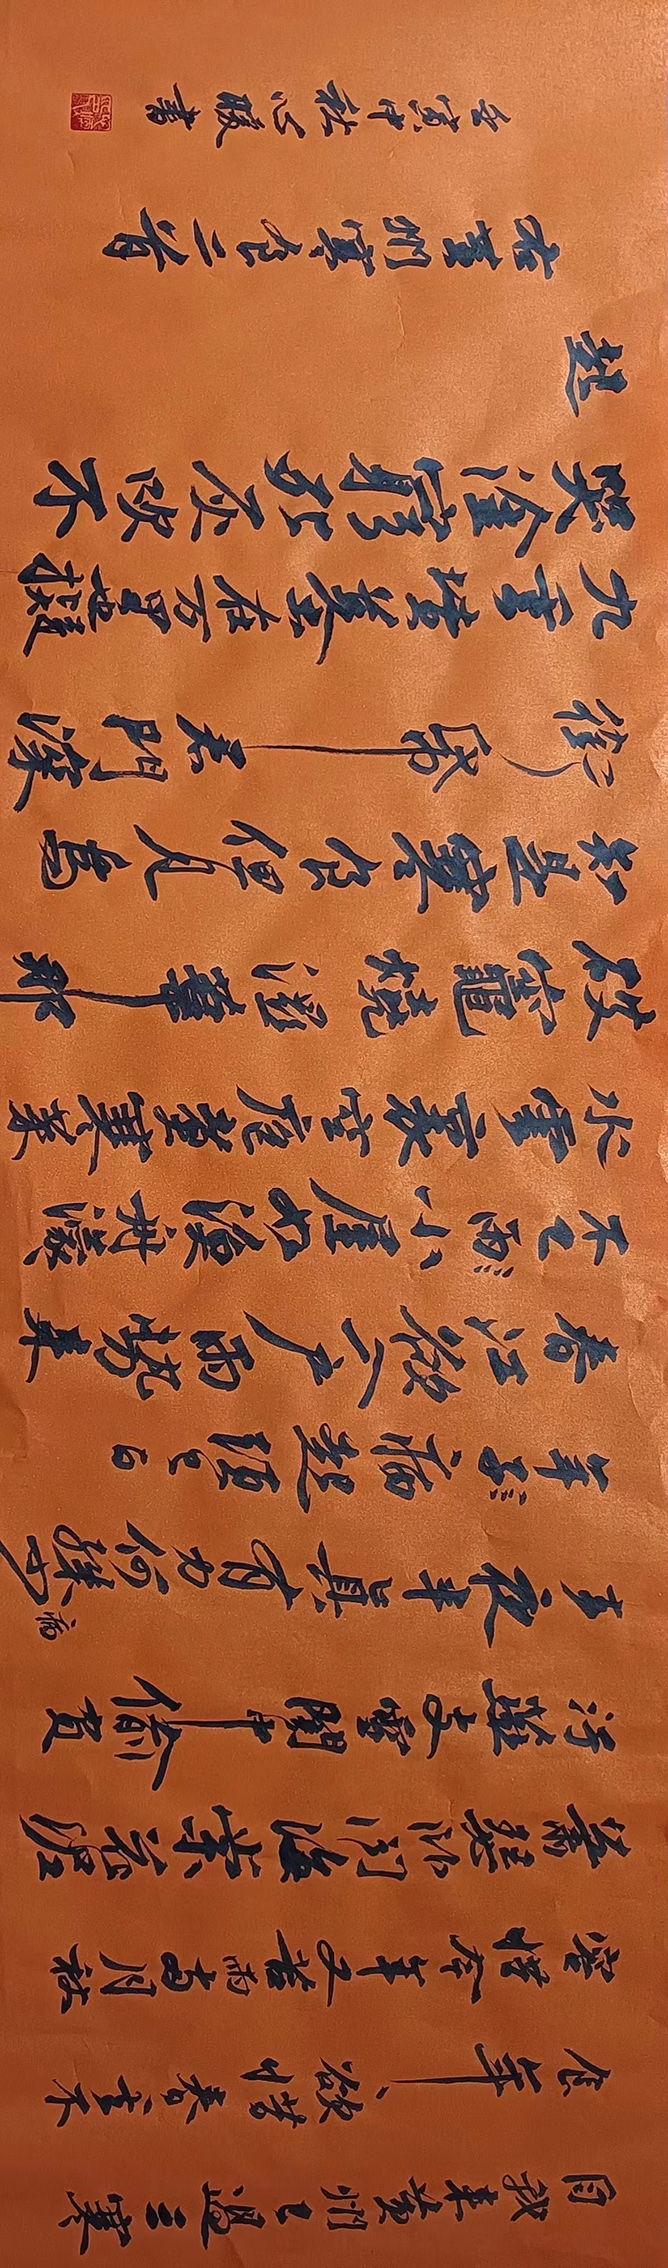 自我来黄州已過三寒
食年、欲惜春、去不
容惜今年又苦雨兩月秋
蕭瑟卧聞海棠花泥
汙燕支雪闇中偷負
去夜半真有力何殊少
病
年子病起須已白
春江欲入戶雨勢来
不已雨小屋如漁舟濛、
水雲裏空庖煮寒菜
破竈燒濕葦那
知是寒食但見烏
銜帋君門深
九重墳墓在万里也擬
哭塗窮死灰吹不
起
右黄州寒食二首
壬寅中秋心暖書